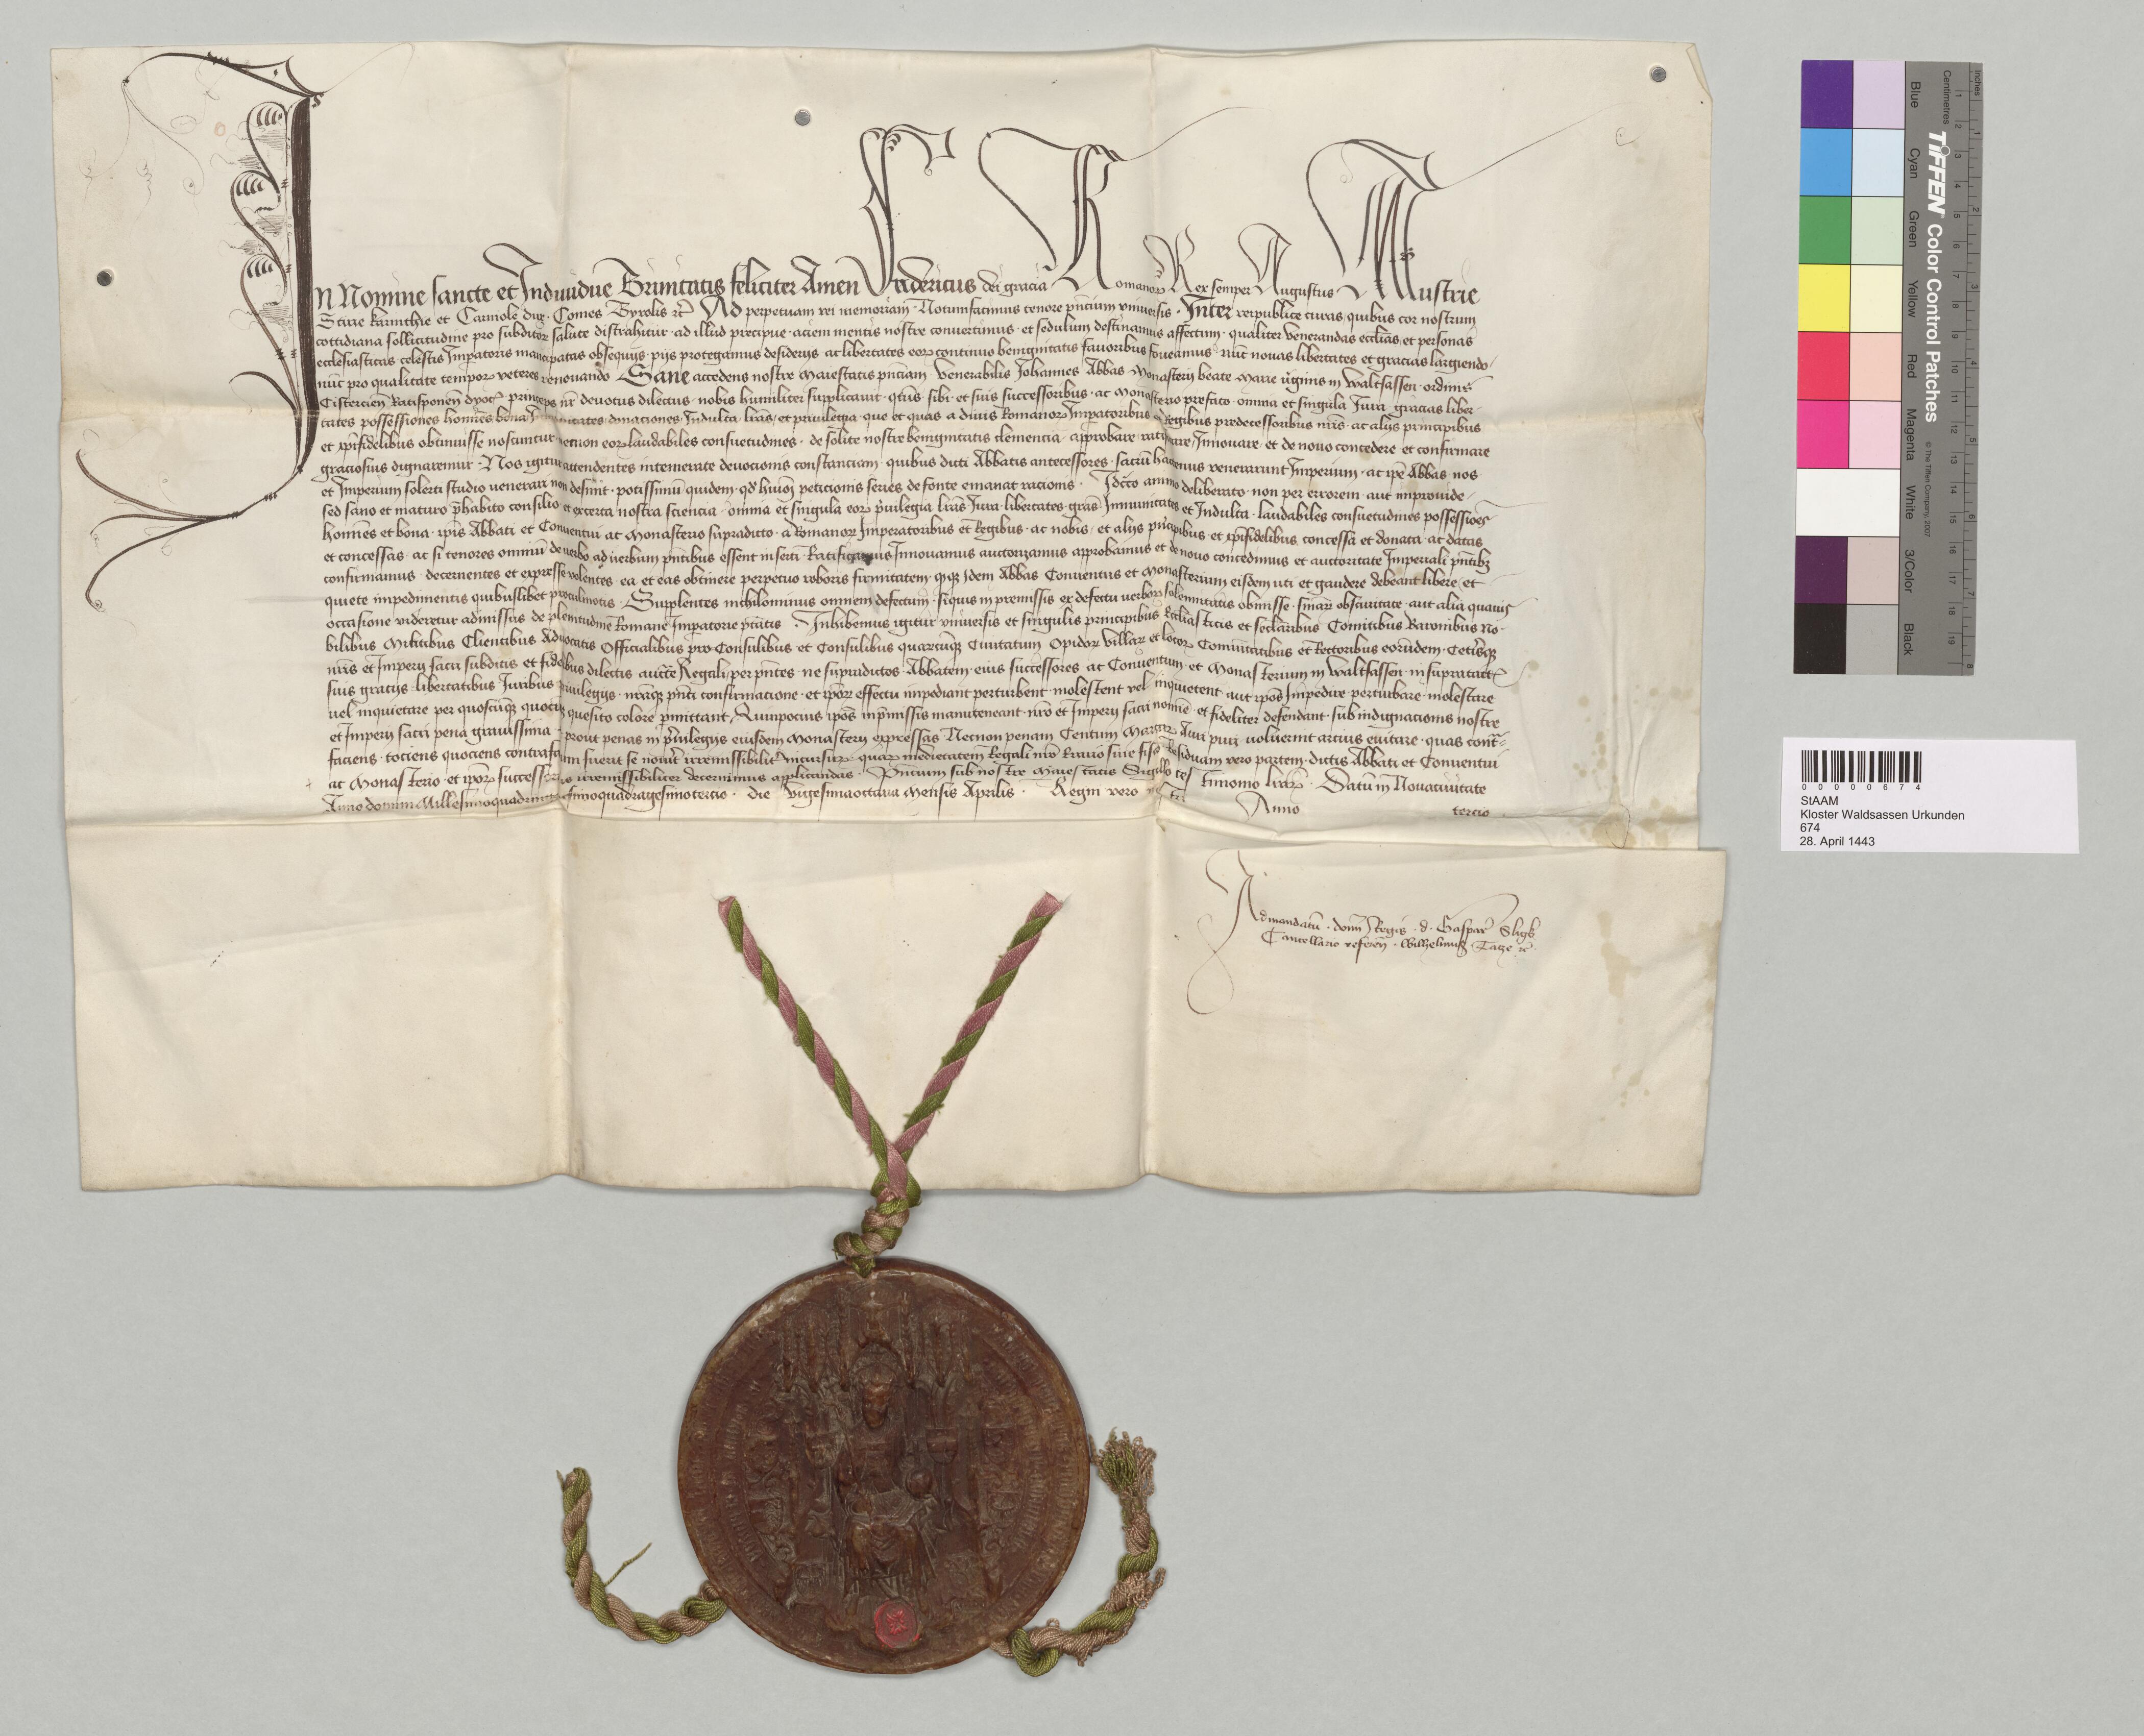 In Nomine sancte et Indiuidue Trinitatis feliciter Amen Fridericus dei gracia Romanorꝝ Rex semper Augustus Austrie
Stirie karinthie et Carniole dux · Comes Tyrolis ꝛc̃ Ad perpetuam rei memoriam · Notumfacimus tenore pñcium vniuersis · Inter reipublice curas quibus cor nostrum
cottidiana sollicitudine pro subditorꝝ salute distrahitur · ad illud precipue · aciem mentis nostre conuertimus · et sedulum destinamus affectum · qualiter venerandas eccl̃ias et personas
ecclesiasticas celestis Imp̱atoris mancipatas obsequijs · pijs protegamus desiderijs ac libertates eorꝝ continuo benignitatis fauoribus foueamus · nũc nouas libertates et gracias largiendo ·
nũc pro qualitate temporꝝ veteres renouando Sane accedens nostre Maiestatis pñciam venerabilis Johannes Abbas Monasterij beate Marie v̓ginis in Waltsassen · ordinis
Cistercieñ Ratisponeñ dyoc̃ princeps nr̃ deuotus dilectus · nobis humiliter supplicauit · q̃tus sibi · et suis successoribus · ac Monasterio prefato · omnia et singula Jura gracias liber-
tates possessiones homĩes bona Immunitates · donaciones Indulta · lr̃as · et priuilegia · que et quas a diuis Romanorꝝ Imp̱atoribus et Regibus predecessoribus nr̃is · ac alijs principibus
et xp̃ifidelibus obtinuisse noscuntur · necnon eorꝝ laudabiles consuetudines · de solite nostre benignitatis clemencia · approbare ratificare Innouare · et de nouo concedere et confirmare
graciosius dignaremur · Nos igitur attendentes intemerate deuocionis constanciam · quibus dicti Abbatis antecessores · sacrũ hactenus venerarunt Imperium · ac ip̃e Abbas · nos
et Imperium solerti studio venerari non desinit · potissimũ quidem · qd̓ huiõi peticionis series de fonte emanat racionis · Idc̃co animo deliberato · non per errorem · aut improuide ·
sed sano et maturo p̃habito consilio et ex certa nostra sciencia · omnia et singula eorꝝ p̓uilegia lr̃as Jura · libertates · gr̃as Immunitates et Indulta · laudabiles consuetudines possessiões
homĩes et bona · ip̃is Abbati et Conuentui ac Monasterio supradicto · a Romanorꝝ Imperatoribus et Regibus · ac nobis · et alijs principibus · et xp̃ifidelibus concessa et donata · ac datas
et concessas · ac si tenores omniũ de verbo ad verbum pñtibus essent inserti Ratificamus Innouamus auctorizamus approbamus et de nouo concedimus et auctoritate Imperiali pñtibꝫ
confirmamus · decernentes et expresse volentes · ea et eas obtinere perpetuo roboris firmitatem · qꝫ Idem Abbas Conuentus et Monasterium eisdem uti et gaudere debeant libere et
quiete impedimentis quibuslibet procul motis · Supplentes nichilominus omnem defectum · siquis in premissis ex defectu verborꝝ solennitatis obmisse · sentenciarꝝ obscuritate · aut alia quauis
occasione videretur admissus de plenitudine Romane Imp̱atorie ptãtis · Inhibemus igitur vniuersis et singulis principibus Eccl̃iasticis et seclaribus Comitibus Baronibus No-
bilibus Militibus Clientibus Aduocatis Officialibus pro Consulibus et Consulibus quarcũqꝫ Ciuitatum Opidorꝝ villarꝝ et locorꝝ Comũitatibus et Rectoribus eorũdem · Ceterisqꝫ
nr̃is et Imperij sacri subditis et fidelibus dilectis auctẽ Regali per pñtes ne supradictos · Abbatem · eius successores ac Conuentum et Monasterium in Waltsassen in supratactis
suis gracijs · libertatibus Juribus priuilegijs · nrãqꝫ pñti confirmacione · et ip̃orꝝ effectu impediant perturbent · molestent vel inquietent aut ip̃os Impedire perturbare · molestare
uel inquietare per quoscũqꝫ quouis quesito colore p̱mittant Quinpocius ip̃os in p̃missis manuteneant · nr̃o et Imperij sacri nomiẽ · et fideliter defendant · sub indignacionis nostre
et Imperij sacri pena grauissima · prout penas in p̓uilegijs eiusdem Monasterij expressas Necnon penam Centum Marcarꝝ Auri puri voluerint arcius euitare · quas contra-
faciens · tociens quociens contrafactum fuerit se nouerit irremissibilit̓ incursurꝝ quarꝝ medietatem Regali nr̃o Erario siue fisco Residuam vero partem · dictis Abbati et Conuentui
ac Monasterio · et ip̃orꝝ successoribus irremissibiliter decernimus applicandas · Pñcium sub nostre Maiestatis Sigillo testimonio lr̃arꝝ · Datũ in Nouaciuitate
Anno domini Millesimoquadringentesimoquadragesimotercio · die vigesimaoctaua Mensis Aprilis · Regni vero nostri Anno tercio
Ad mandatũ · domĩ Regis · d · Gaspar̃ Sligk
Cancellario refereñ · Wilhelmus Tacze ꝛc̃
StAAM
Kloster Waldsassen Urkunden
674
28. April 1443
0 0 0 0 0 6 7 4
TIFFEN Color Control Patches
© The Tiffen Company, 2007
Centimetres
Inches
Blue Cyan Green Yellow Red Magenta White 3/Color Black
1 2 3 4 5 6 7 8 9 10 11 12 13 14 15 16 17 18 19
1 2 3 4 5 6 7 8